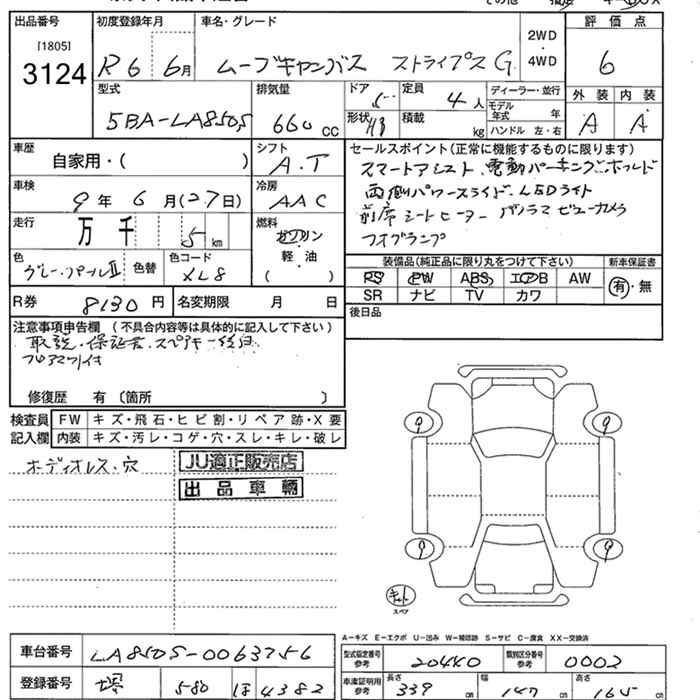 出品番号 初度登録年月 車名・グレード 2WD 評価点
[1805] ・
3124 R6 6月 ムーブキャンバス ストライプス G 4WD 6
型式 排気量 ドア 定員 ディーラー・並行 外装 内装
5BA-LA850S 660cc 5 4人 モデル年式 年 A A
形状 積載 kg ハンドル 左・右
車歴 シフト セールスポイント(正常に機能するものに限ります)
自家用・( ) A.T スマートアシスト、電動パーキング、ホールド
車検 冷房 両側パワースライド、LEDライト
9年 6月(27日) AAC 前席シートヒーター パノラマビューカメラ
走行 燃料 フォグランプ
万 千 5km ガソリン
軽・油
( )
色 色替 色コード 装備品(純正品に限り丸をつけて下さい) 新車保証書
グレー・パールII XL8 PS PW ABS エアB AW 有・無
SR ナビ TV カワ
R券 8130円 名変期限 月 日 後日品
注意事項申告欄(不具合内容等は具体的に記入して下さい)
取説・保証書・スペアキー
フロアマット付
修復歴 有〔箇所 〕
検査員 FW キズ・飛石・ヒビ割・リペア跡・X要
記入欄 内装 キズ・汚レ・コゲ・穴・スレ・キレ・破レ
ホディオレス・穴 JU適正販売店
出品車輌
9 9
9 9
キット
スペア
A-キズ E-エクボ U-凹み W-補修跡 S-サビ C-腐食 XX-交換済
車台番号 LA850S-0063756 型式指定番号 参考 20440 類別区分番号 参考 0002
登録番号 堺 580 ほ 4382 車庫証明用 参考 長さ 339cm 幅 147cm 高さ 165cm